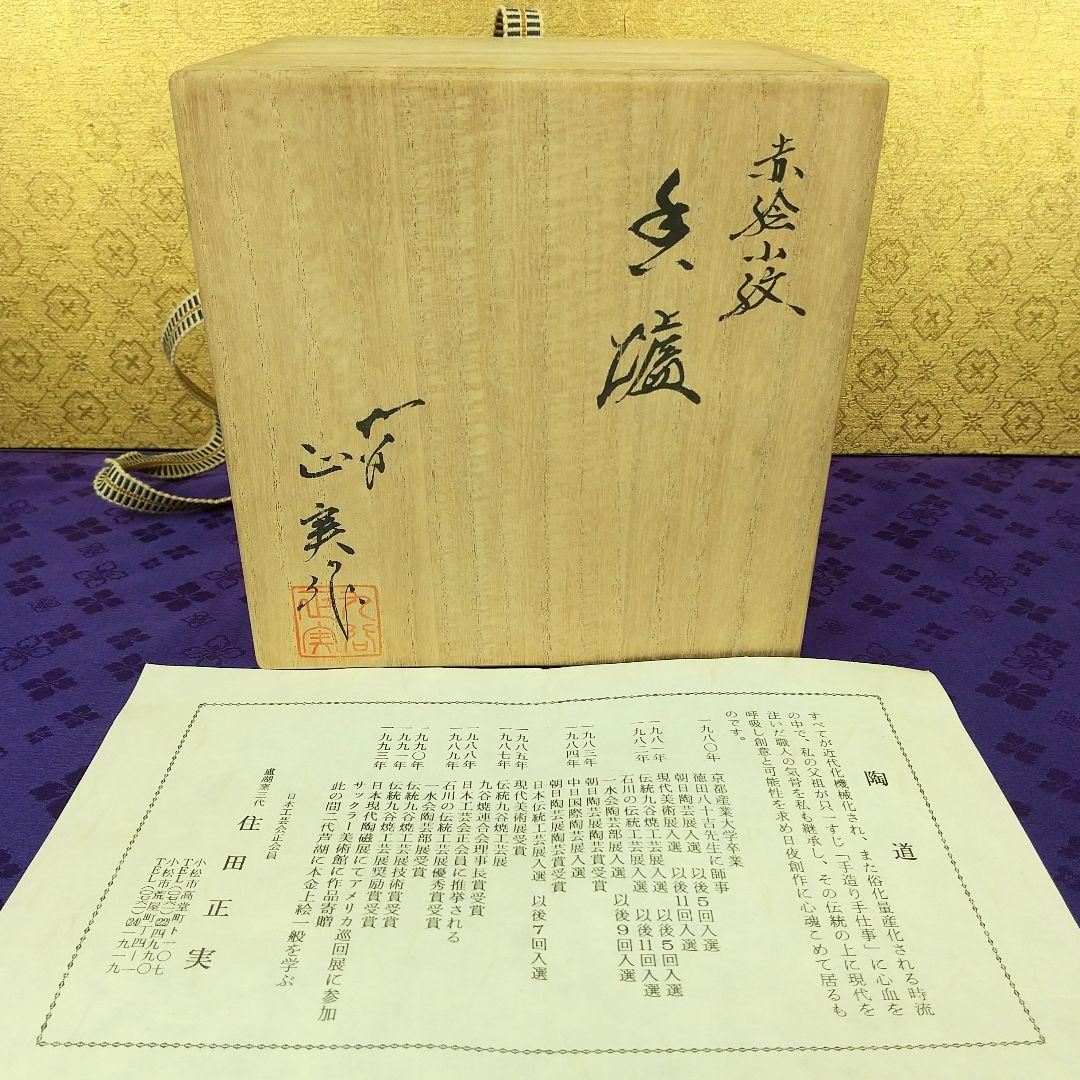 赤絵小紋
香爐
九谷
正実作
九谷
正実
陶道
すべてが近代化機械化され、また俗化量産化される時流
の中で、私の父祖が只一すじ「手造り手仕事」に心血を
注いだ職人の気骨を私も継承し、その伝統の上に現代を
呼吸し創意と可能性を求め日夜創作に心魂こめて居るも
のです。
一九八〇年 京都産業大学卒業
徳田八十吉先生に師事
朝日陶芸展入選 以後5回入選
一九八一年 現代美術展入選 以後11回入選
伝統九谷焼工芸展入選 以後5回入選
一九八二年 石川の伝統工芸展入選 以後11回入選
一水会陶芸部展入選 以後9回入選
一九八三年 朝日陶芸展陶芸賞受賞
中日国際陶芸展入選
一九八四年 朝日陶芸展陶芸賞受賞
日本伝統工芸展入選 以後7回入選
一九八五年 現代美術展受賞
一九八七年 伝統九谷焼工芸展
九谷焼連合会理事長賞受賞
一九八八年 日本工芸会正会員に推挙される
一九八九年 石川の伝統工芸展優秀賞受賞
一水会陶芸部展受賞
一九九〇年 伝統九谷焼工芸展技術賞受賞
一九九一年 伝統九谷焼工芸展奨励賞受賞
一九九三年 日本現代陶磁展にてアメリカ巡回展に参加
サックラー美術館に作品寄贈
此の間二代芦湖に本金上絵一般を学ぶ
日本工芸会正会員
盧湖窯三代 住田正実
小松市高堂町ト一〇七
TEL(〇七六一)(22)四九九〇
小松市荒屋町丁四一一
TEL(〇七六一)(24)一九一九